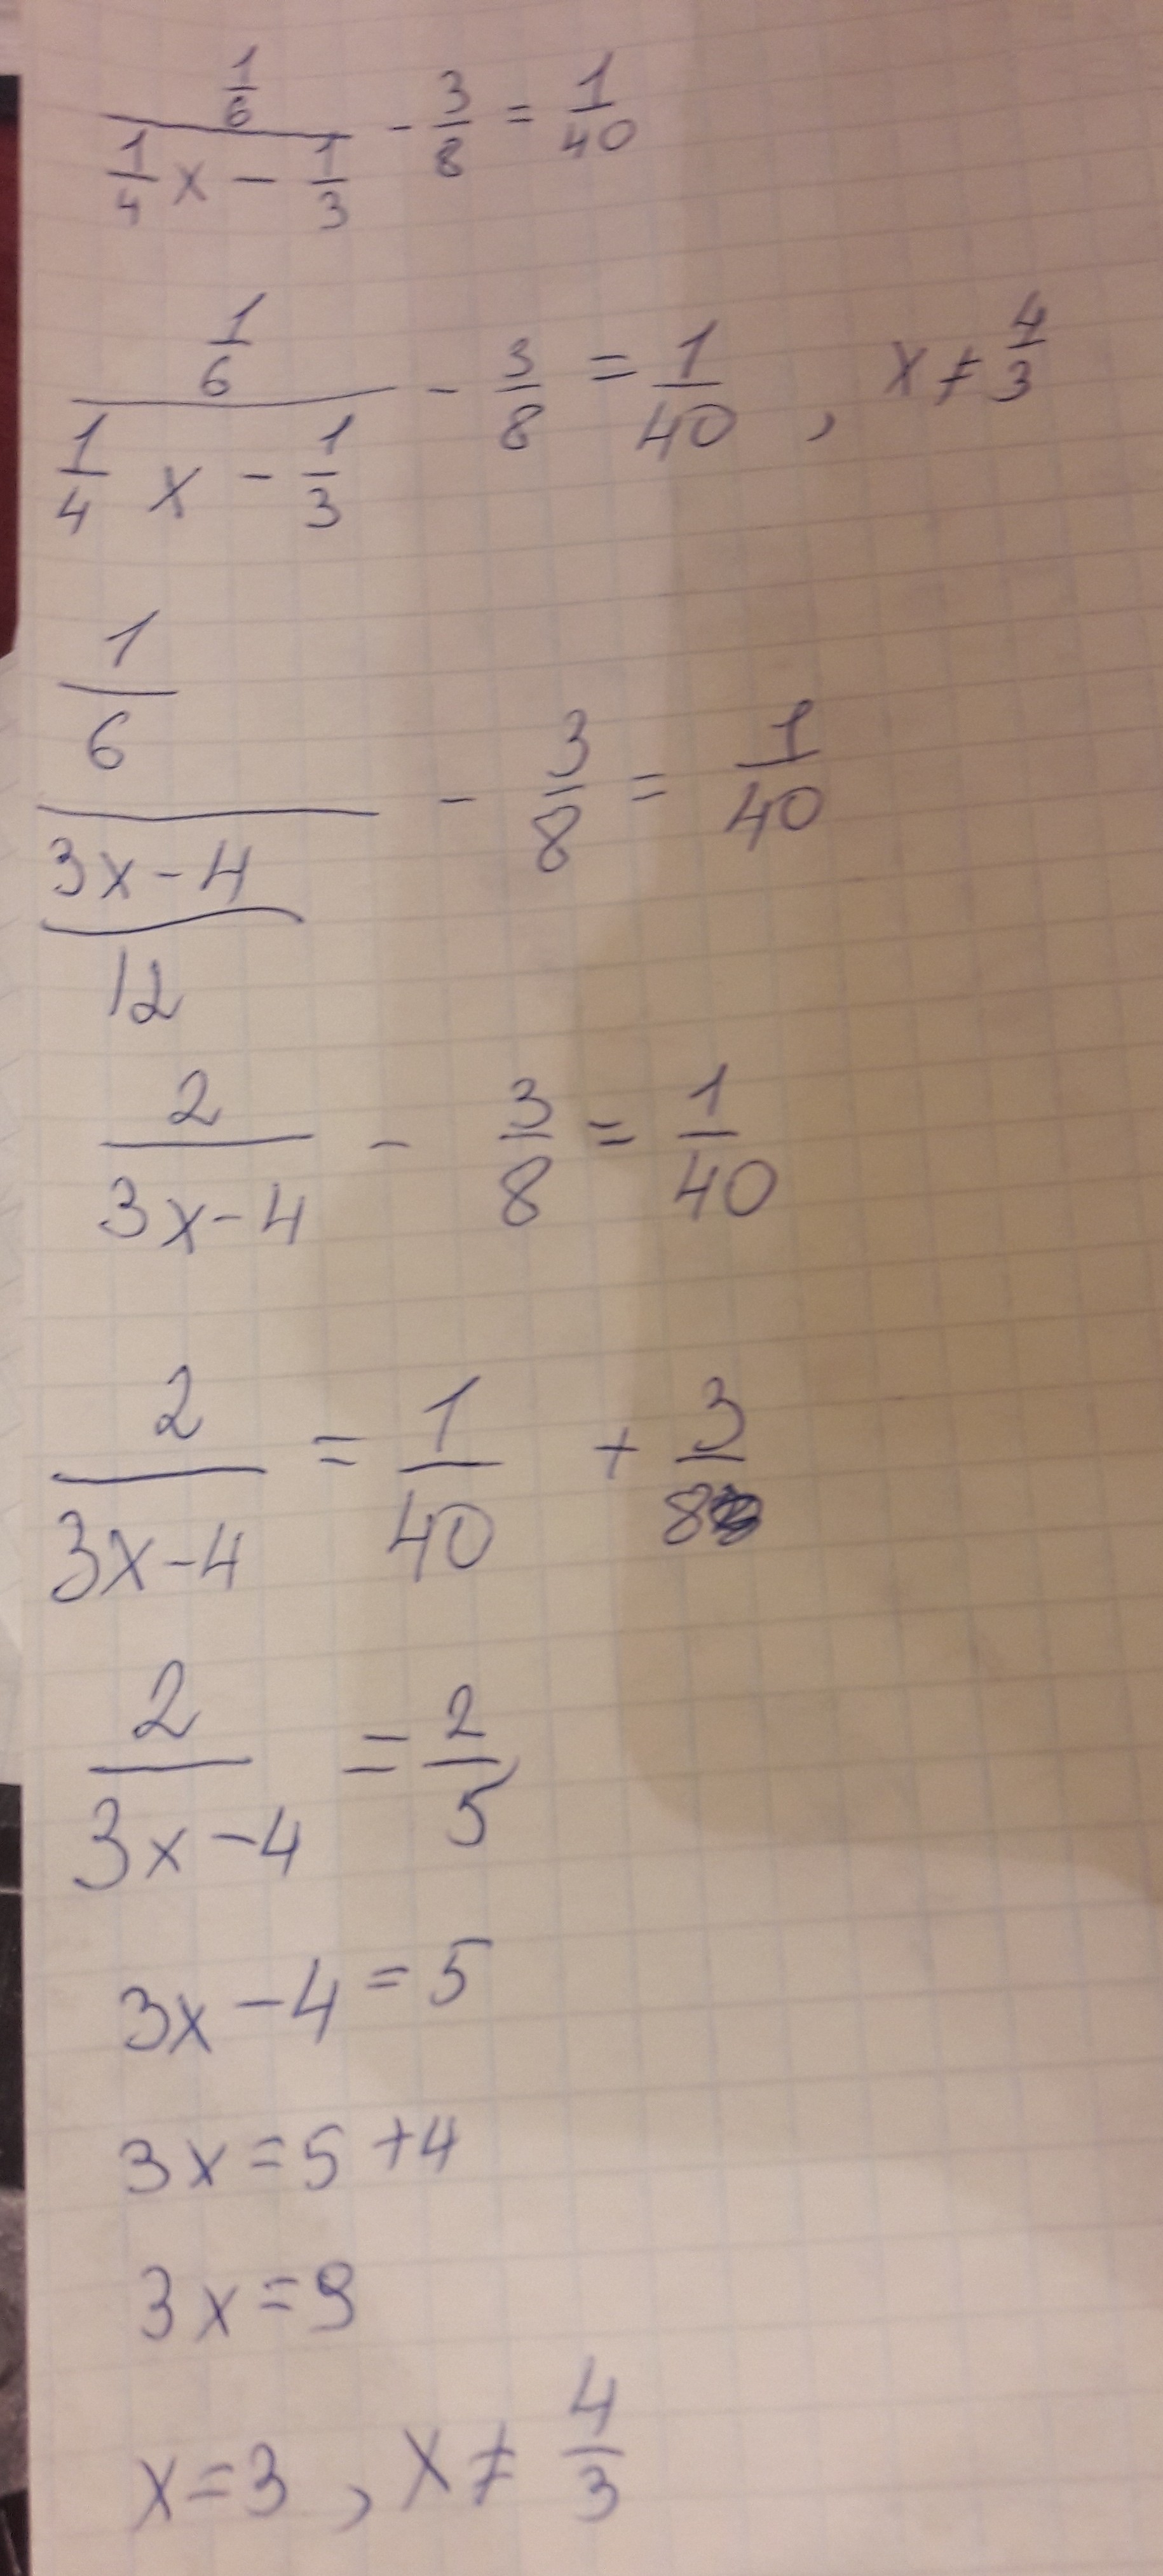 (1/6)/(1/4 x - 1/3) - 3/8 = 1/40
(1/6)/(1/4 x - 1/3) - 3/8 = 1/40 , x ≠ 4/3
(1/6)/((3x-4)/12) - 3/8 = 1/40
2/(3x-4) - 3/8 = 1/40
2/(3x-4) = 1/40 + 3/8
2/(3x-4) = 2/5
3x-4=5
3x=5+4
3x=9
x=3 , x ≠ 4/3